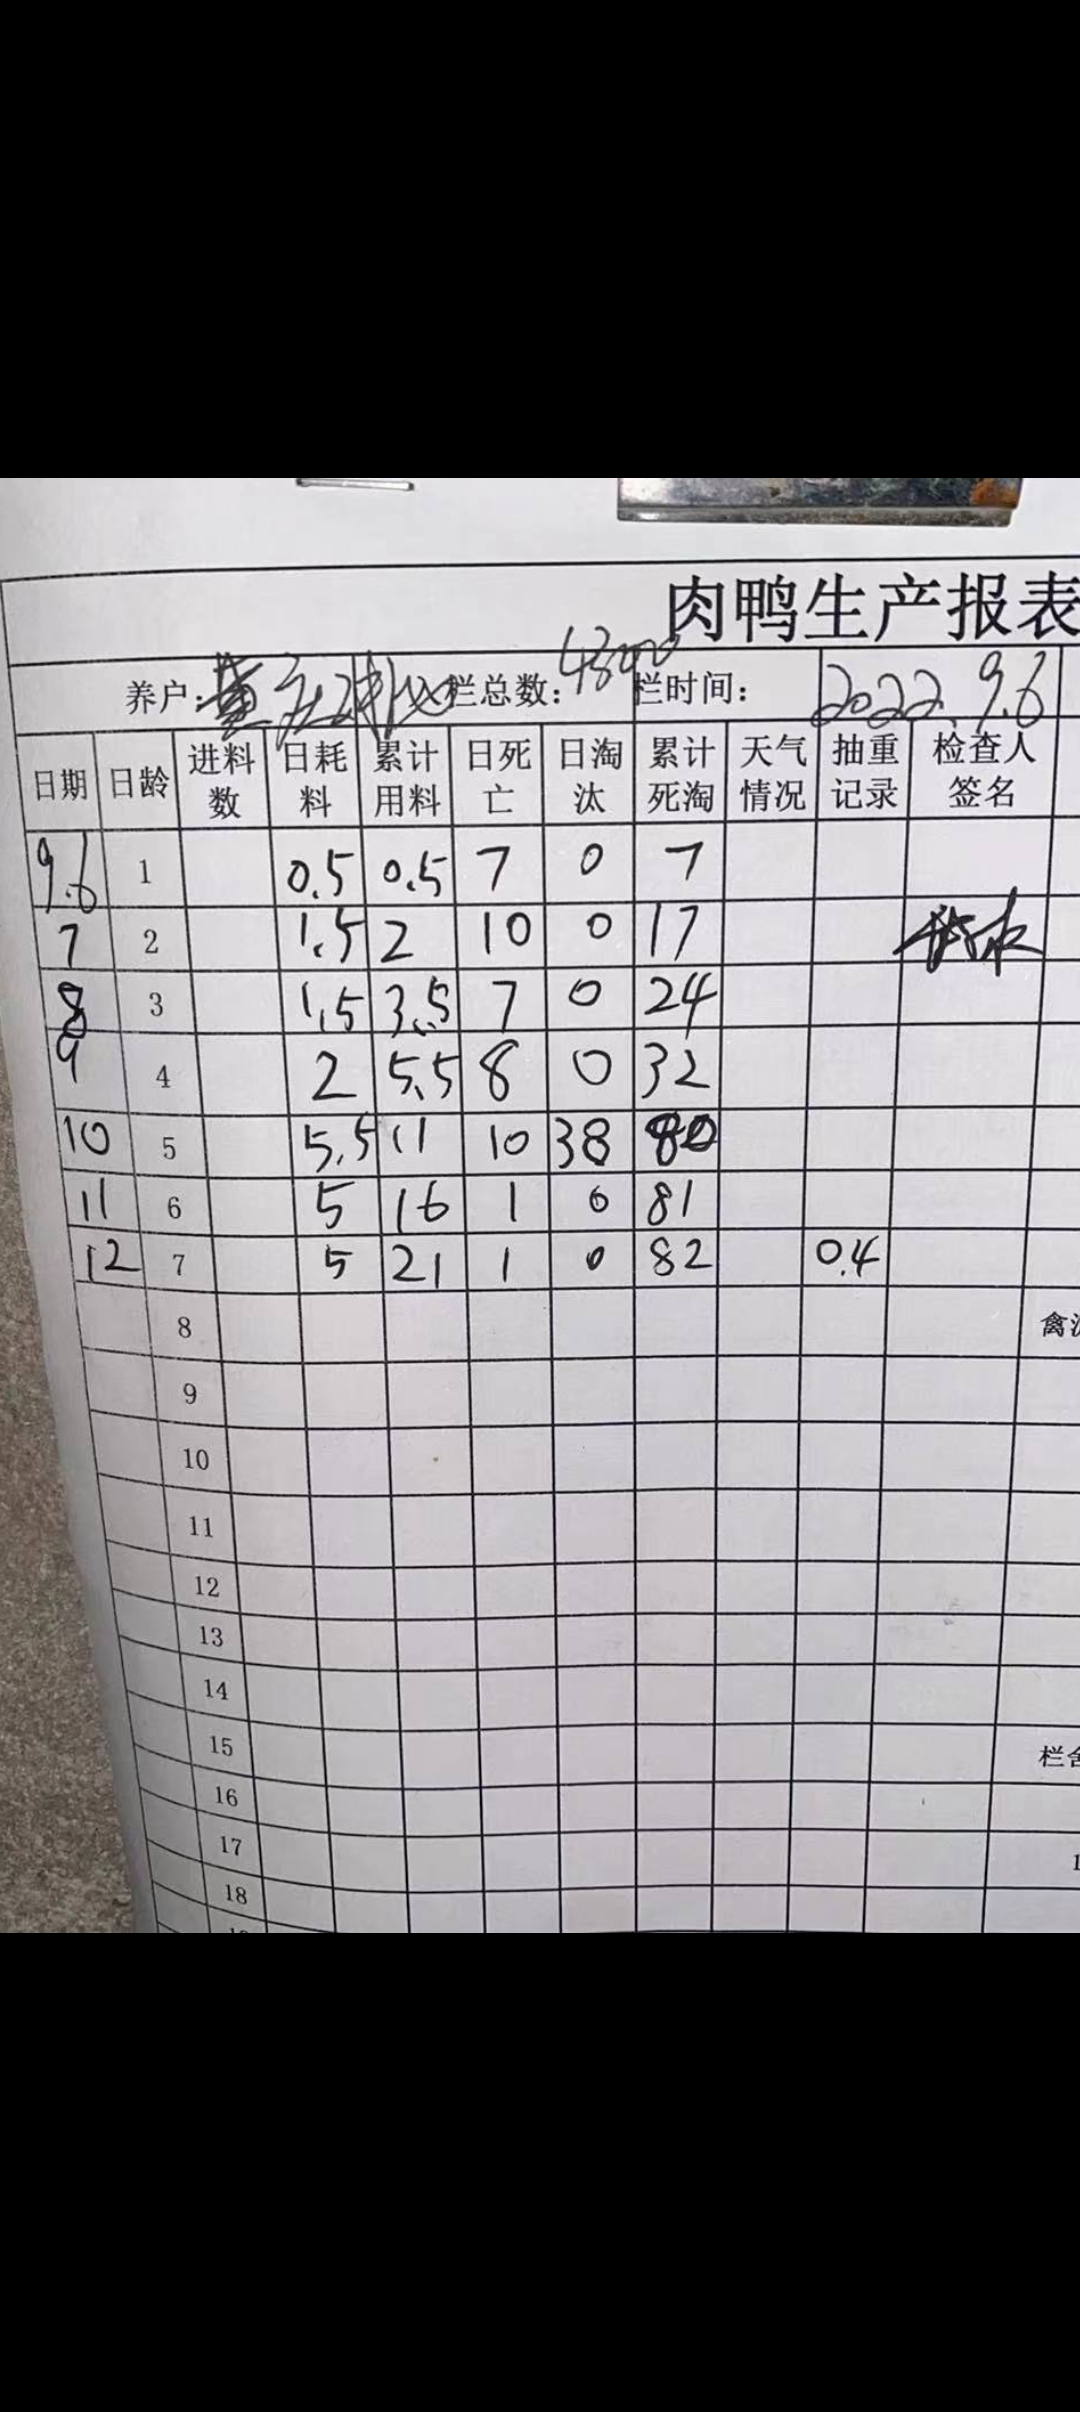 肉鸭生产报表
养户: 栏总数: 栏时间: 2022.9.6
日期 日龄 进料数 日耗料 累计用料 日死亡 日淘汰 累计死淘 天气情况 抽重记录 检查人签名
9.6 1 0.5 0.5 7 0 7
7 2 1.5 2 10 0 17
8 3 1.5 3.5 7 0 24
9 4 2 5.5 8 0 32
10 5 5.5 11 10 38 80
11 6 5 16 1 0 81
12 7 5 21 1 0 82 0.4
8 禽
9
10
11
12
13
14
15 栏舍
16
17 1
18